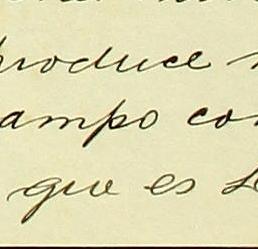 produce
ampo con
que es